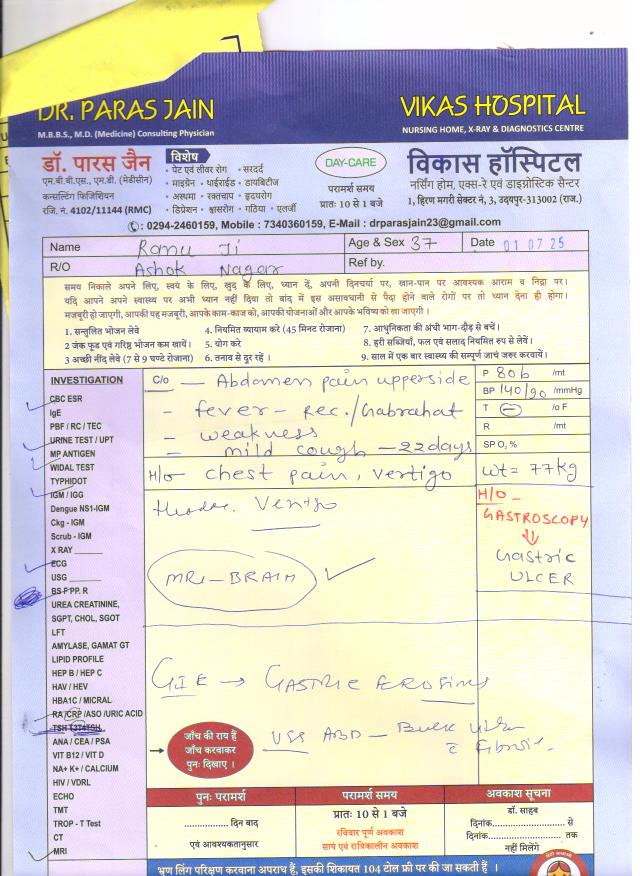 DR. PARAS JAIN
M.B.B.S., M.D. (Medicine) Consulting Physician
VIKAS HOSPITAL
NURSING HOME, X-RAY & DIAGNOSTICS CENTRE
डॉ. पारस जैन
एम.बी.बी.एस., एम.डी. (मेडीसीन)
कन्सल्टिंग फिजिशियन
रजि. नं. 4102/11144 (RMC)
विशेष
• पेट एवं लीवर रोग • सरदर्द
• माइग्रेन • थाईराईड • डायबिटीज
• अस्थमा • रक्तचाप • हृदयरोग
• डिप्रेशन • श्वासरोग • गठिया • एलर्जी
DAY-CARE
परामर्श समय
प्रातः 10 से 1 बजे
विकास हॉस्पिटल
नर्सिंग होम, एक्स-रे एवं डाइग्नोस्टिक सैन्टर
1, हिरण मगरी सेक्टर नं. 3, उदयपुर-313002 (राज.)
: 0294-2460159, Mobile : 7340360159, E-Mail : drparasjain23@gmail.com
Name Ranu Ji Age & Sex 37 Date 01 07 25
R/O Ashok Nagar Ref by.
समय निकाले अपने लिए, स्वयं के लिए, खुद के लिए, ध्यान दें, अपनी दिनचर्या पर, खान-पान पर आवश्यक आराम व निद्रा पर।
यदि आपने अपने स्वास्थ्य पर अभी ध्यान नहीं दिया तो बांद में इस असावधानी से पैदा होने वाले रोगों पर तो ध्यान देना ही होगा।
मजबूरी हो जाएगी, आपकी यह मजबूरी, आपके काम-काज को, आपकी योजनाओं और आपके भविष्य को खा जाएगी।
1. सन्तुलित भोजन लेवे
2. जंक फूड एवं गरिष्ठ भोजन कम खायें।
3. अच्छी नींद लेवे (7 से 9 घण्टे रोजाना)
4. नियमित व्यायाम करे (45 मिनट रोजाना)
5. योग करे
6. तनाव से दूर रहें।
7. आधुनिकता की अंधी भाग-दौड़ से बचें।
8. हरी सब्जियाँ, फल एवं सलाद नियमित रूप से लेवें।
9. साल में एक बार स्वास्थ्य की सम्पूर्ण जाचं जरुर करवायें।
INVESTIGATION
CBC ESR
IgE
PBF / RC / TEC
URINE TEST / UPT
MP ANTIGEN
WIDAL TEST
TYPHIDOT
IGM / IGG
Dengue NS1-IGM
Ckg - IGM
Scrub - IGM
X RAY
ECG
USG
BS-F PP. R
UREA CREATININE,
SGPT, CHOL, SGOT
LFT
AMYLASE, GAMAT GT
LIPID PROFILE
HEP B / HEP C
HAV / HEV
HBA1C / MICRAL
RA /CRP /ASO /URIC ACID
TSH T3T4TSH
ANA / CEA / PSA
VIT B12 / VIT D
NA+ K+ / CALCIUM
HIV / VDRL
ECHO
TMT
TROP - T Test
CT
MRI
C/o — Abdomen pain upperside
- fever - Rec./Gabrahat
- weakness
- mild cough — 22 days
H/o - Chest pain, Vertigo
Vertigo
MRI - BRAIN
GIE → GASTRIC EROSIONS
USG ABD -
P 80 b /mt
BP 140/90 /mmHg
T /o F
R /mt
SP O, %
wt = 77kg
H/O -
GASTROSCOPY
⇓
Gastric
ULCER
जाँच की राय हैं
जाँच करवाकर
पुनः दिखाए ।
पुनः परामर्श
................ दिन बाद
एवं आवश्यकतानुसार
परामर्श समय
प्रातः 10 से 1 बजे
रविवार पूर्ण अवकाश
सायं एवं रात्रिकालीन अवकाश
अवकाश सूचना
डॉ. साहब
दिनांक................ से
दिनांक................ तक
नहीं मिलेंगे
भ्रूण लिंग परिक्षण करवाना अपराध हैं, इसकी शिकायत 104 टोल फ्री पर की जा सकती हैं ।